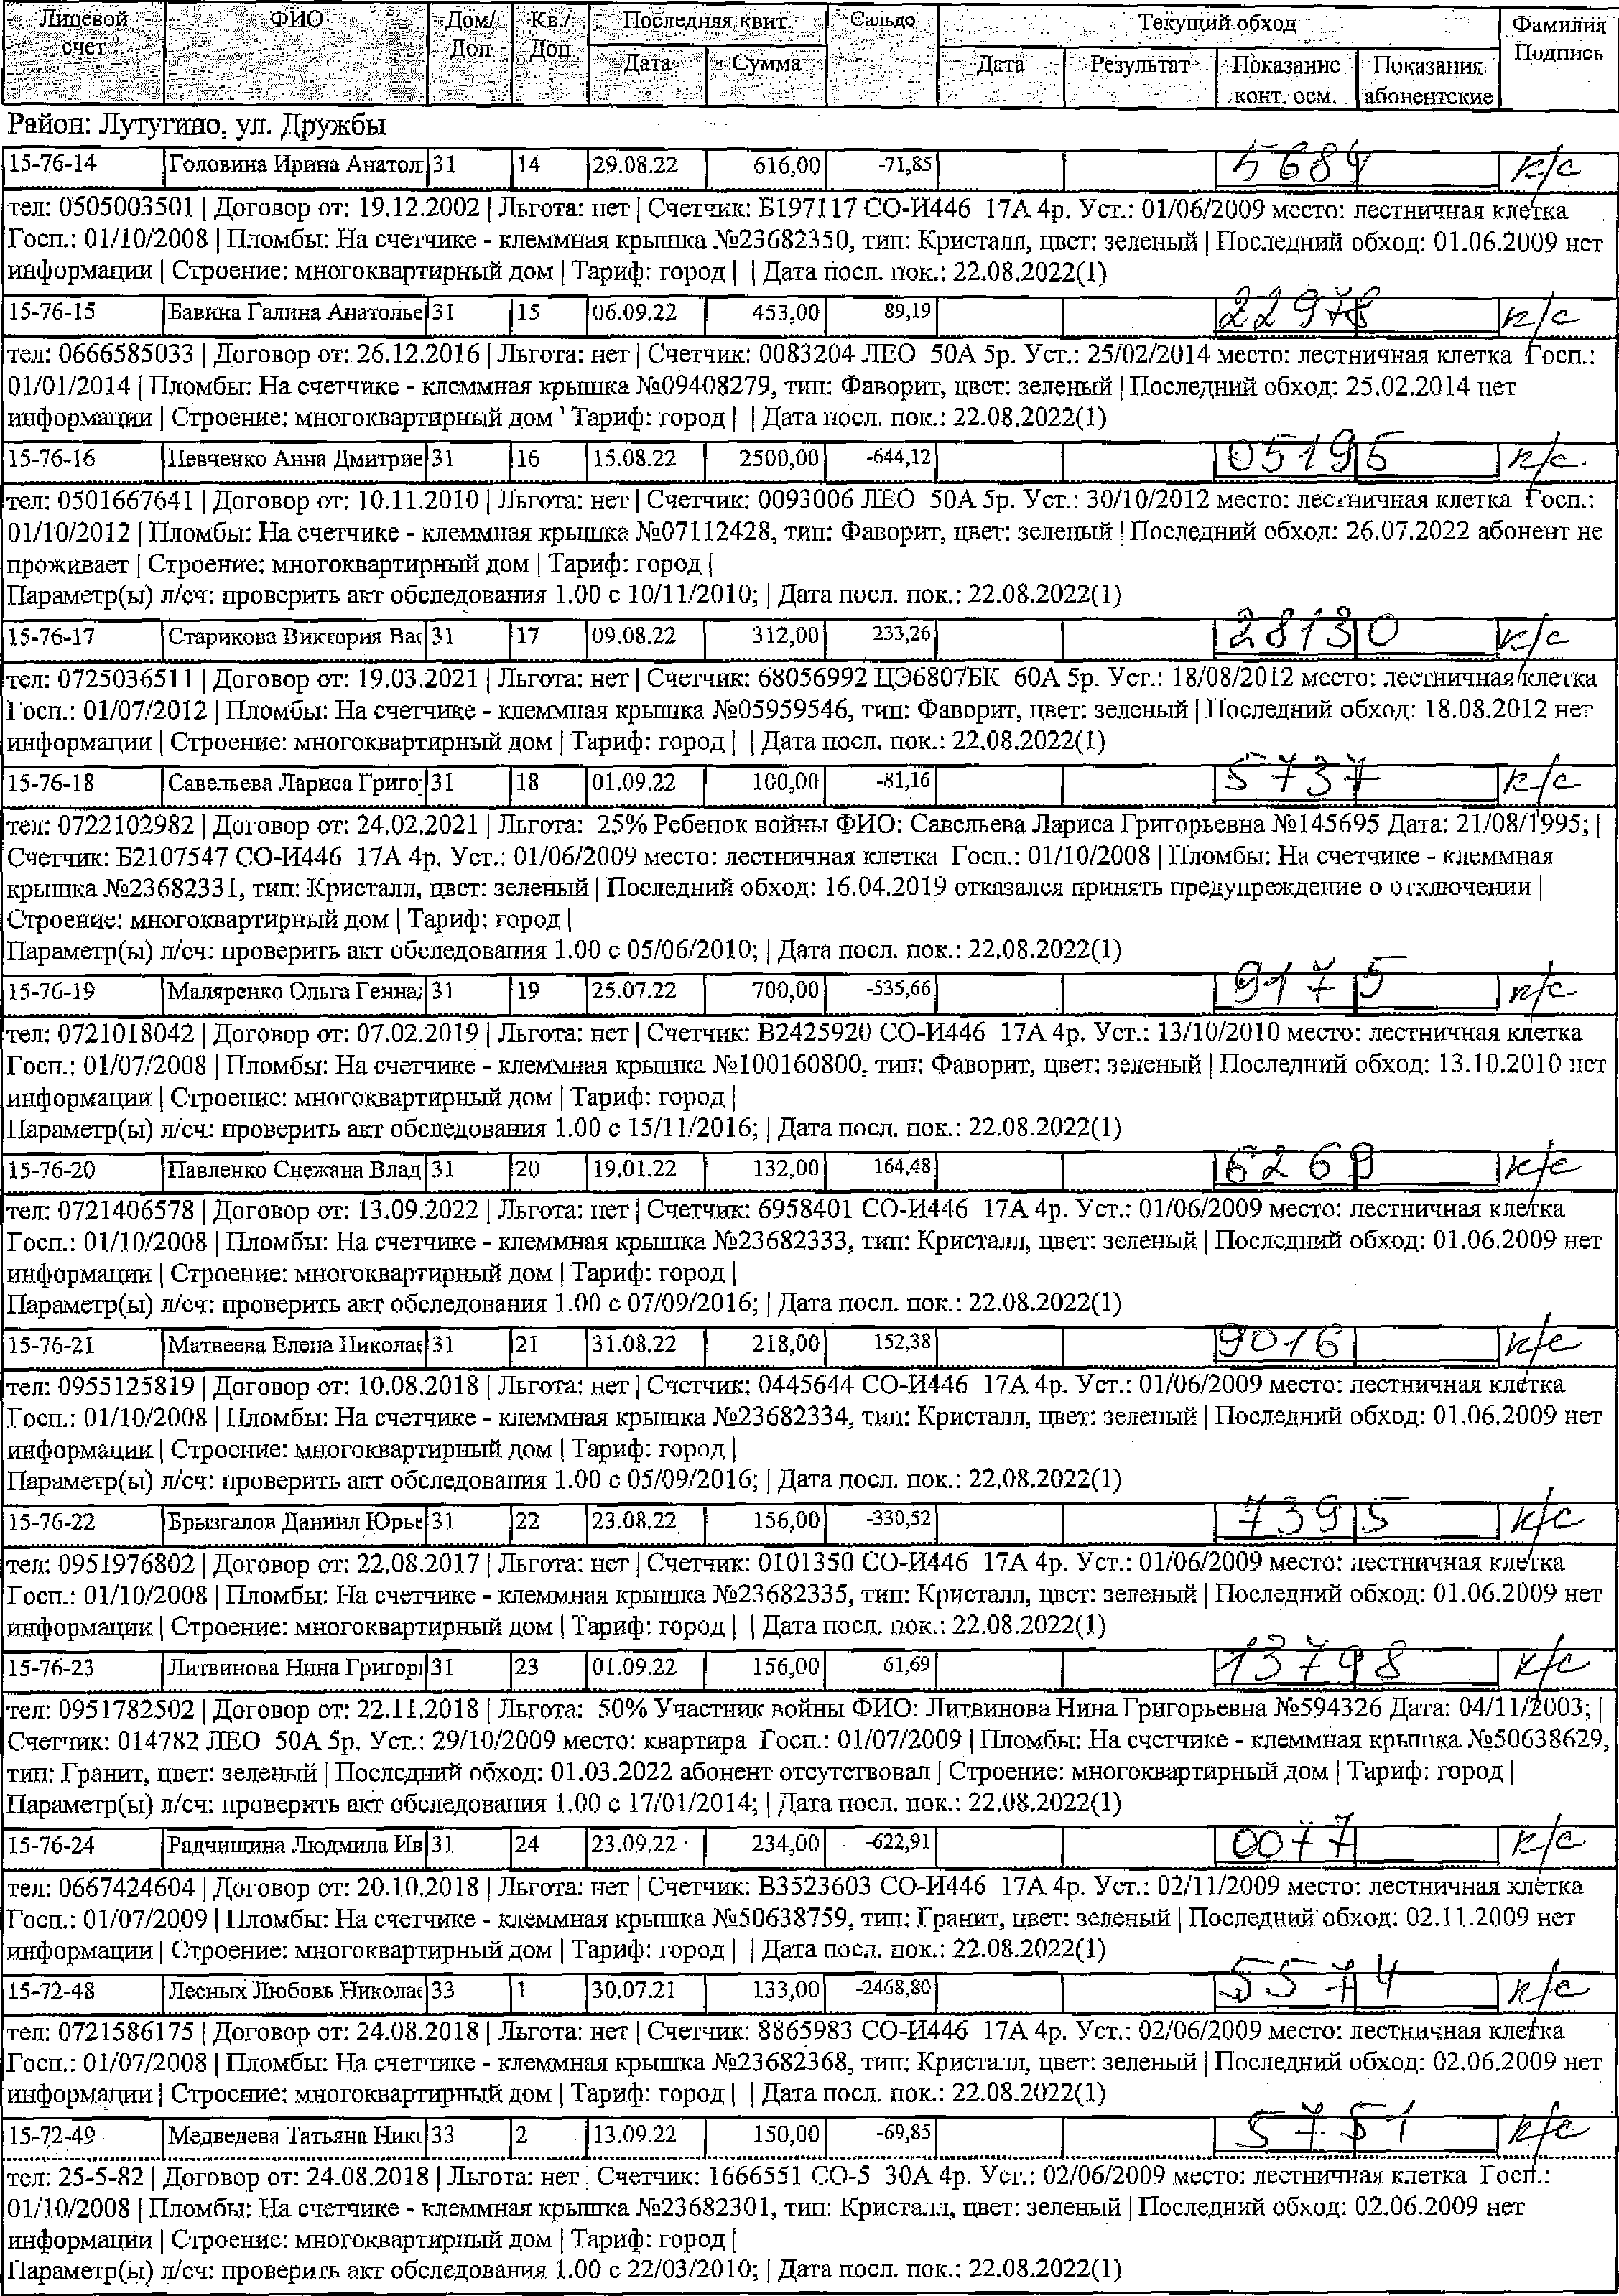 Лицевой счет ФИО Дом/Доп Кв./Доп Последняя квит. Сальдо Текущий обход Фамилия Подпись
Дата Сумма Дата Результат Показание конт. осм. Показания абонентские
Район: Лутугино, ул. Дружбы
15-76-14 Головина Ирина Анатол 31 14 29.08.22 616,00 -71,85 5684 к/с
тел: 0505003501 | Договор от: 19.12.2002 | Льгота: нет | Счетчик: Б197117 СО-И446 17А 4р. Уст.: 01/06/2009 место: лестничная клетка
Госп.: 01/10/2008 | Пломбы: На счетчике - клеммная крышка №23682350, тип: Кристалл, цвет: зеленый | Последний обход: 01.06.2009 нет
информации | Строение: многоквартирный дом | Тариф: город | | Дата посл. пок.: 22.08.2022(1)
15-76-15 Бавина Галина Анатолье 31 15 06.09.22 453,00 89,19 22978 к/с
тел: 0666585033 | Договор от: 26.12.2016 | Льгота: нет | Счетчик: 0083204 ЛЕО 50А 5р. Уст.: 25/02/2014 место: лестничная клетка Госп.:
01/01/2014 | Пломбы: На счетчике - клеммная крышка №09408279, тип: Фаворит, цвет: зеленый | Последний обход: 25.02.2014 нет
информации | Строение: многоквартирный дом | Тариф: город | | Дата посл. пок.: 22.08.2022(1)
15-76-16 Певченко Анна Дмитрие 31 16 15.08.22 2500,00 -644,12 05195 к/с
тел: 0501667641 | Договор от: 10.11.2010 | Льгота: нет | Счетчик: 0093006 ЛЕО 50А 5р. Уст.: 30/10/2012 место: лестничная клетка Госп.:
01/10/2012 | Пломбы: На счетчике - клеммная крышка №07112428, тип: Фаворит, цвет: зеленый | Последний обход: 26.07.2022 абонент не
проживает | Строение: многоквартирный дом | Тариф: город |
Параметр(ы) л/сч: проверить акт обследования 1.00 с 10/11/2010; | Дата посл. пок.: 22.08.2022(1)
15-76-17 Старикова Виктория Вас 31 17 09.08.22 312,00 233,26 28130 к/с
тел: 0725036511 | Договор от: 19.03.2021 | Льгота: нет | Счетчик: 68056992 ЦЭ6807БК 60А 5р. Уст.: 18/08/2012 место: лестничная клетка
Госп.: 01/07/2012 | Пломбы: На счетчике - клеммная крышка №05959546, тип: Фаворит, цвет: зеленый | Последний обход: 18.08.2012 нет
информации | Строение: многоквартирный дом | Тариф: город | | Дата посл. пок.: 22.08.2022(1)
15-76-18 Савельева Лариса Григо 31 18 01.09.22 100,00 -81,16 5737 к/с
тел: 0722102982 | Договор от: 24.02.2021 | Льгота: 25% Ребенок войны ФИО: Савельева Лариса Григорьевна №145695 Дата: 21/08/1995; |
Счетчик: Б2107547 СО-И446 17А 4р. Уст.: 01/06/2009 место: лестничная клетка Госп.: 01/10/2008 | Пломбы: На счетчике - клеммная
крышка №23682331, тип: Кристалл, цвет: зеленый | Последний обход: 16.04.2019 отказался принять предупреждение о отключении |
Строение: многоквартирный дом | Тариф: город |
Параметр(ы) л/сч: проверить акт обследования 1.00 с 05/06/2010; | Дата посл. пок.: 22.08.2022(1)
15-76-19 Маляренко Ольга Генна 31 19 25.07.22 700,00 -535,66 9175 к/с
тел: 0721018042 | Договор от: 07.02.2019 | Льгота: нет | Счетчик: В2425920 СО-И446 17А 4р. Уст.: 13/10/2010 место: лестничная клетка
Госп.: 01/07/2008 | Пломбы: На счетчике - клеммная крышка №100160800, тип: Фаворит, цвет: зеленый | Последний обход: 13.10.2010 нет
информации | Строение: многоквартирный дом | Тариф: город |
Параметр(ы) л/сч: проверить акт обследования 1.00 с 15/11/2016; | Дата посл. пок.: 22.08.2022(1)
15-76-20 Павленко Снежана Влад 31 20 19.01.22 132,00 164,48 6269 к/с
тел: 0721406578 | Договор от: 13.09.2022 | Льгота: нет | Счетчик: 6958401 СО-И446 17А 4р. Уст.: 01/06/2009 место: лестничная клетка
Госп.: 01/10/2008 | Пломбы: На счетчике - клеммная крышка №23682333, тип: Кристалл, цвет: зеленый | Последний обход: 01.06.2009 нет
информации | Строение: многоквартирный дом | Тариф: город |
Параметр(ы) л/сч: проверить акт обследования 1.00 с 07/09/2016; | Дата посл. пок.: 22.08.2022(1)
15-76-21 Матвеева Елена Николае 31 21 31.08.22 218,00 152,38 9016 к/с
тел: 0955125819 | Договор от: 10.08.2018 | Льгота: нет | Счетчик: 0445644 СО-И446 17А 4р. Уст.: 01/06/2009 место: лестничная клетка
Госп.: 01/10/2008 | Пломбы: На счетчике - клеммная крышка №23682334, тип: Кристалл, цвет: зеленый | Последний обход: 01.06.2009 нет
информации | Строение: многоквартирный дом | Тариф: город |
Параметр(ы) л/сч: проверить акт обследования 1.00 с 05/09/2016; | Дата посл. пок.: 22.08.2022(1)
15-76-22 Брызгалов Даниил Юрье 31 22 23.08.22 156,00 -330,52 7395 к/с
тел: 0951976802 | Договор от: 22.08.2017 | Льгота: нет | Счетчик: 0101350 СО-И446 17А 4р. Уст.: 01/06/2009 место: лестничная клетка
Госп.: 01/10/2008 | Пломбы: На счетчике - клеммная крышка №23682335, тип: Кристалл, цвет: зеленый | Последний обход: 01.06.2009 нет
информации | Строение: многоквартирный дом | Тариф: город | | Дата посл. пок.: 22.08.2022(1)
15-76-23 Литвинова Нина Григор 31 23 01.09.22 156,00 61,69 13798 к/с
тел: 0951782502 | Договор от: 22.11.2018 | Льгота: 50% Участник войны ФИО: Литвинова Нина Григорьевна №594326 Дата: 04/11/2003; |
Счетчик: 014782 ЛЕО 50А 5р. Уст.: 29/10/2009 место: квартира Госп.: 01/07/2009 | Пломбы: На счетчике - клеммная крышка №50638629,
тип: Гранит, цвет: зеленый | Последний обход: 01.03.2022 абонент отсутствовал | Строение: многоквартирный дом | Тариф: город |
Параметр(ы) л/сч: проверить акт обследования 1.00 с 17/01/2014; | Дата посл. пок.: 22.08.2022(1)
15-76-24 Радчишина Людмила Ив 31 24 23.09.22 234,00 -622,91 0077 к/с
тел: 0667424604 | Договор от: 20.10.2018 | Льгота: нет | Счетчик: В3523603 СО-И446 17А 4р. Уст.: 02/11/2009 место: лестничная клетка
Госп.: 01/07/2009 | Пломбы: На счетчике - клеммная крышка №50638759, тип: Гранит, цвет: зеленый | Последний обход: 02.11.2009 нет
информации | Строение: многоквартирный дом | Тариф: город | | Дата посл. пок.: 22.08.2022(1)
15-72-48 Лесных Любовь Николае 33 1 30.07.21 133,00 -2468,80 5574 к/с
тел: 0721586175 | Договор от: 24.08.2018 | Льгота: нет | Счетчик: 8865983 СО-И446 17А 4р. Уст.: 02/06/2009 место: лестничная клетка
Госп.: 01/07/2008 | Пломбы: На счетчике - клеммная крышка №23682368, тип: Кристалл, цвет: зеленый | Последний обход: 02.06.2009 нет
информации | Строение: многоквартирный дом | Тариф: город | | Дата посл. пок.: 22.08.2022(1)
15-72-49 Медведева Татьяна Ник 33 2 13.09.22 150,00 -69,85 5751 к/с
тел: 25-5-82 | Договор от: 24.08.2018 | Льгота: нет | Счетчик: 1666551 СО-5 30А 4р. Уст.: 02/06/2009 место: лестничная клетка Госп.:
01/10/2008 | Пломбы: На счетчике - клеммная крышка №23682301, тип: Кристалл, цвет: зеленый | Последний обход: 02.06.2009 нет
информации | Строение: многоквартирный дом | Тариф: город |
Параметр(ы) л/сч: проверить акт обследования 1.00 с 22/03/2010; | Дата посл. пок.: 22.08.2022(1)